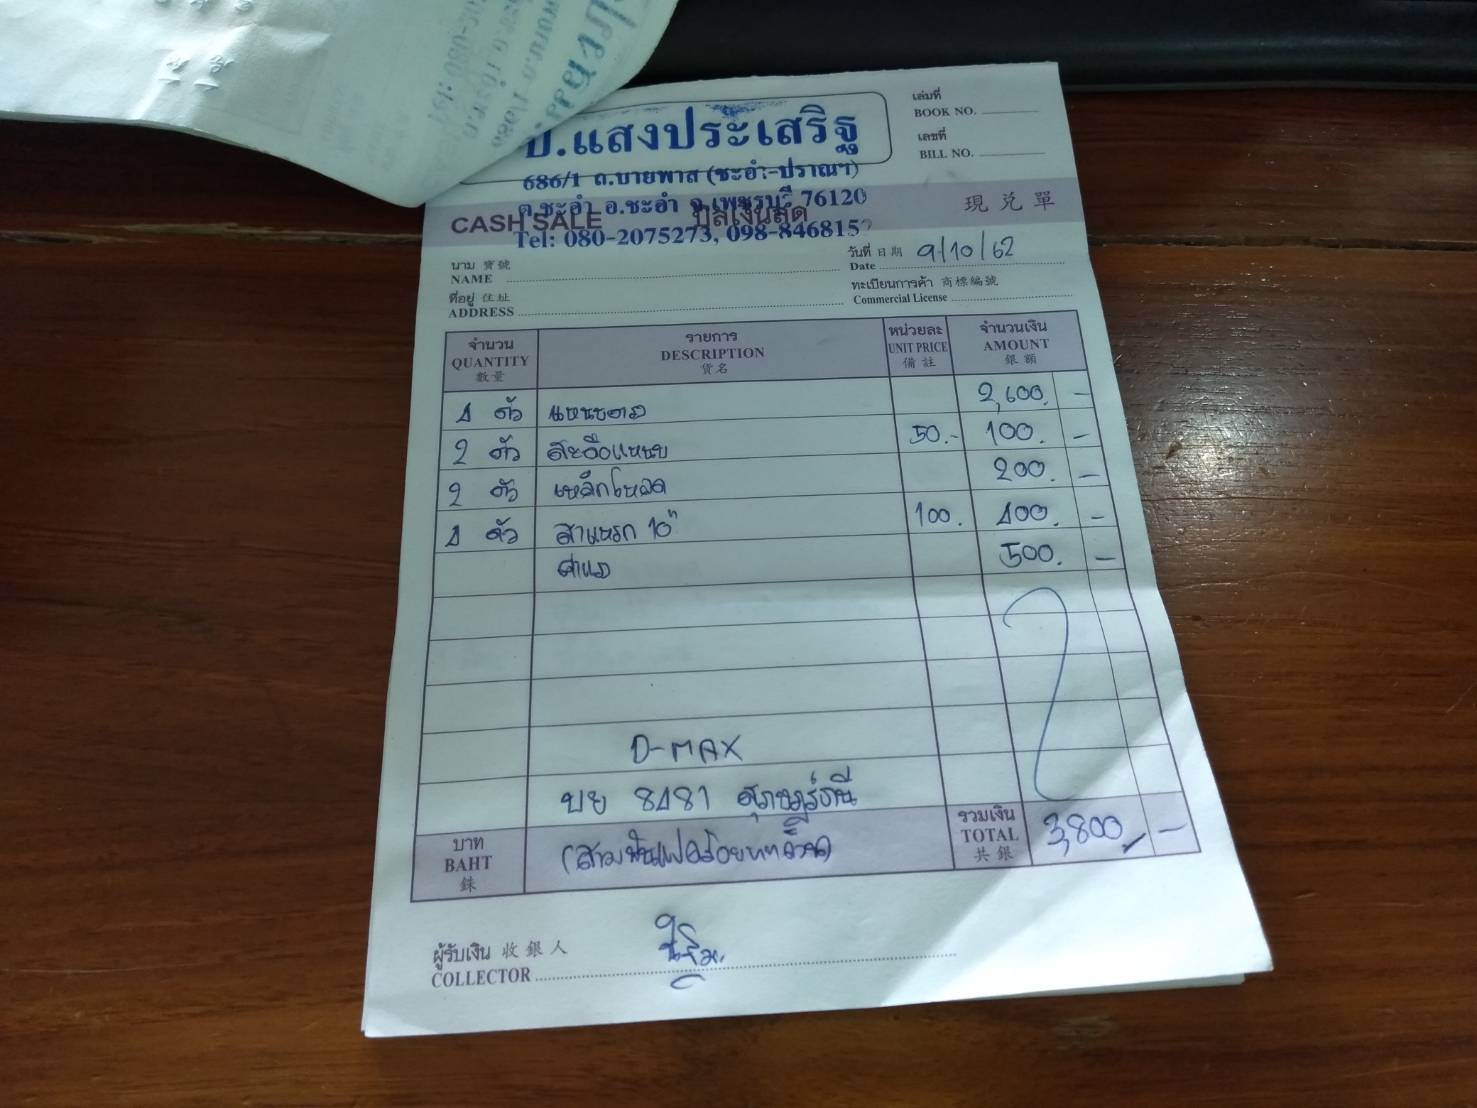 ป.แสงประเสริฐ
686/1 ถ.บายพาส (ชะอำ-ปราณฯ)
ต.ชะอำ อ.ชะอำ จ.เพชรบุรี 76120
Tel: 080-2075273, 098-846815
เล่มที่
BOOK NO.
เลขที่
BILL NO.
CASH SALE บิลเงินสด 現兌單
นาม 寶號
NAME
วันที่ 日期 9/10/62
Date
ที่อยู่ 住址
ADDRESS
ทะเบียนการค้า 商標編號
Commercial License
จำนวน รายการ หน่วยละ จำนวนเงิน
QUANTITY DESCRIPTION UNIT PRICE AMOUNT
數量 貨名 備註 銀額
1 ตัว 2,600.-
2 ตัว สะดือแหนบ 50.- 100.-
2 ตัว เหล็กโหลด 200.-
1 ตัว สาแหรก 10" 100. 400.-
ค่าแรง 500.-
D-MAX
บย 8481 สุราษฎร์ธานี
บาท รวมเงิน
BAHT (สามพันแปดร้อยบาทถ้วน) TOTAL 3,800.-
銖 共銀
ผู้รับเงิน 收銀人
COLLECTOR